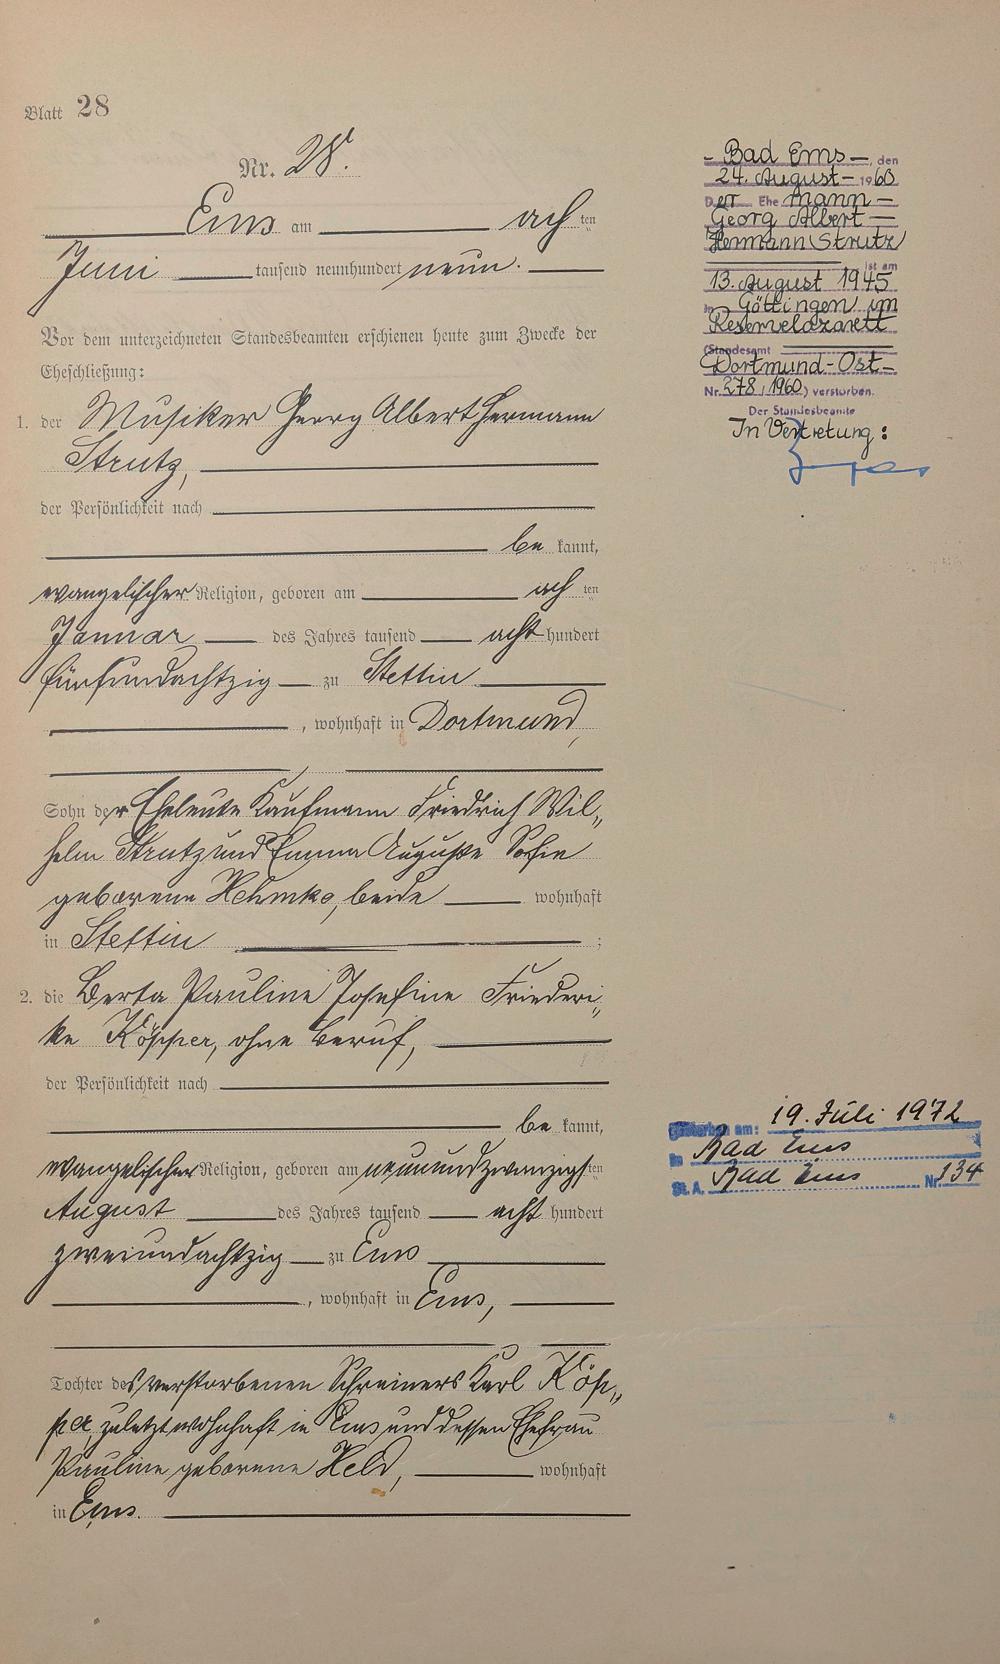 Blatt 28
Nr. 28.
Ems am ach ten
Juni tausend neunhundert neun.
Vor dem unterzeichneten Standesbeamten erschienen heute zum Zwecke der
Eheschließung:
1. der Musiker Georg Albert Hermann
Strutz,
der Persönlichkeit nach
be kannt,
evangelischer Religion, geboren am ach ten
Januar des Jahres tausend acht hundert
fünfundachtzig zu Stettin
, wohnhaft in Dortmund,
Sohn der Eheleute Kaufmann Friedrich Wil-
helm Strutz und Emma Auguste Sofie
geborene, beide wohnhaft
in Stettin ;
2. die Berta Pauline Josefine Friederi-
ke Köpper, ohne Beruf,
der Persönlichkeit nach
be kannt,
evangelischer Religion, geboren am neunundzwanzigs ten
August des Jahres tausend acht hundert
zweiundachtzig zu Ems
, wohnhaft in Ems,
Tochter des verstorbenen Schreiners Karl Köp-
per, zuletzt wohnhaft in Ems und dessen Ehefrau
Pauline geborene Held, wohnhaft
in Ems.
- Bad Ems -, den
24. August - 1960
Der Ehe mann -
Georg Albert -
Hermann Strutz
ist am
13. August 1945
in Göttingen im
Reservelazarett
(Standesamt
Dortmund-Ost-
Nr. 278/1960) verstorben.
Der Standesbeamte
In Vertretung:
Gestorben am: 19. Juli 1972
in Bad Ems
St. A. Bad Ems Nr. 134